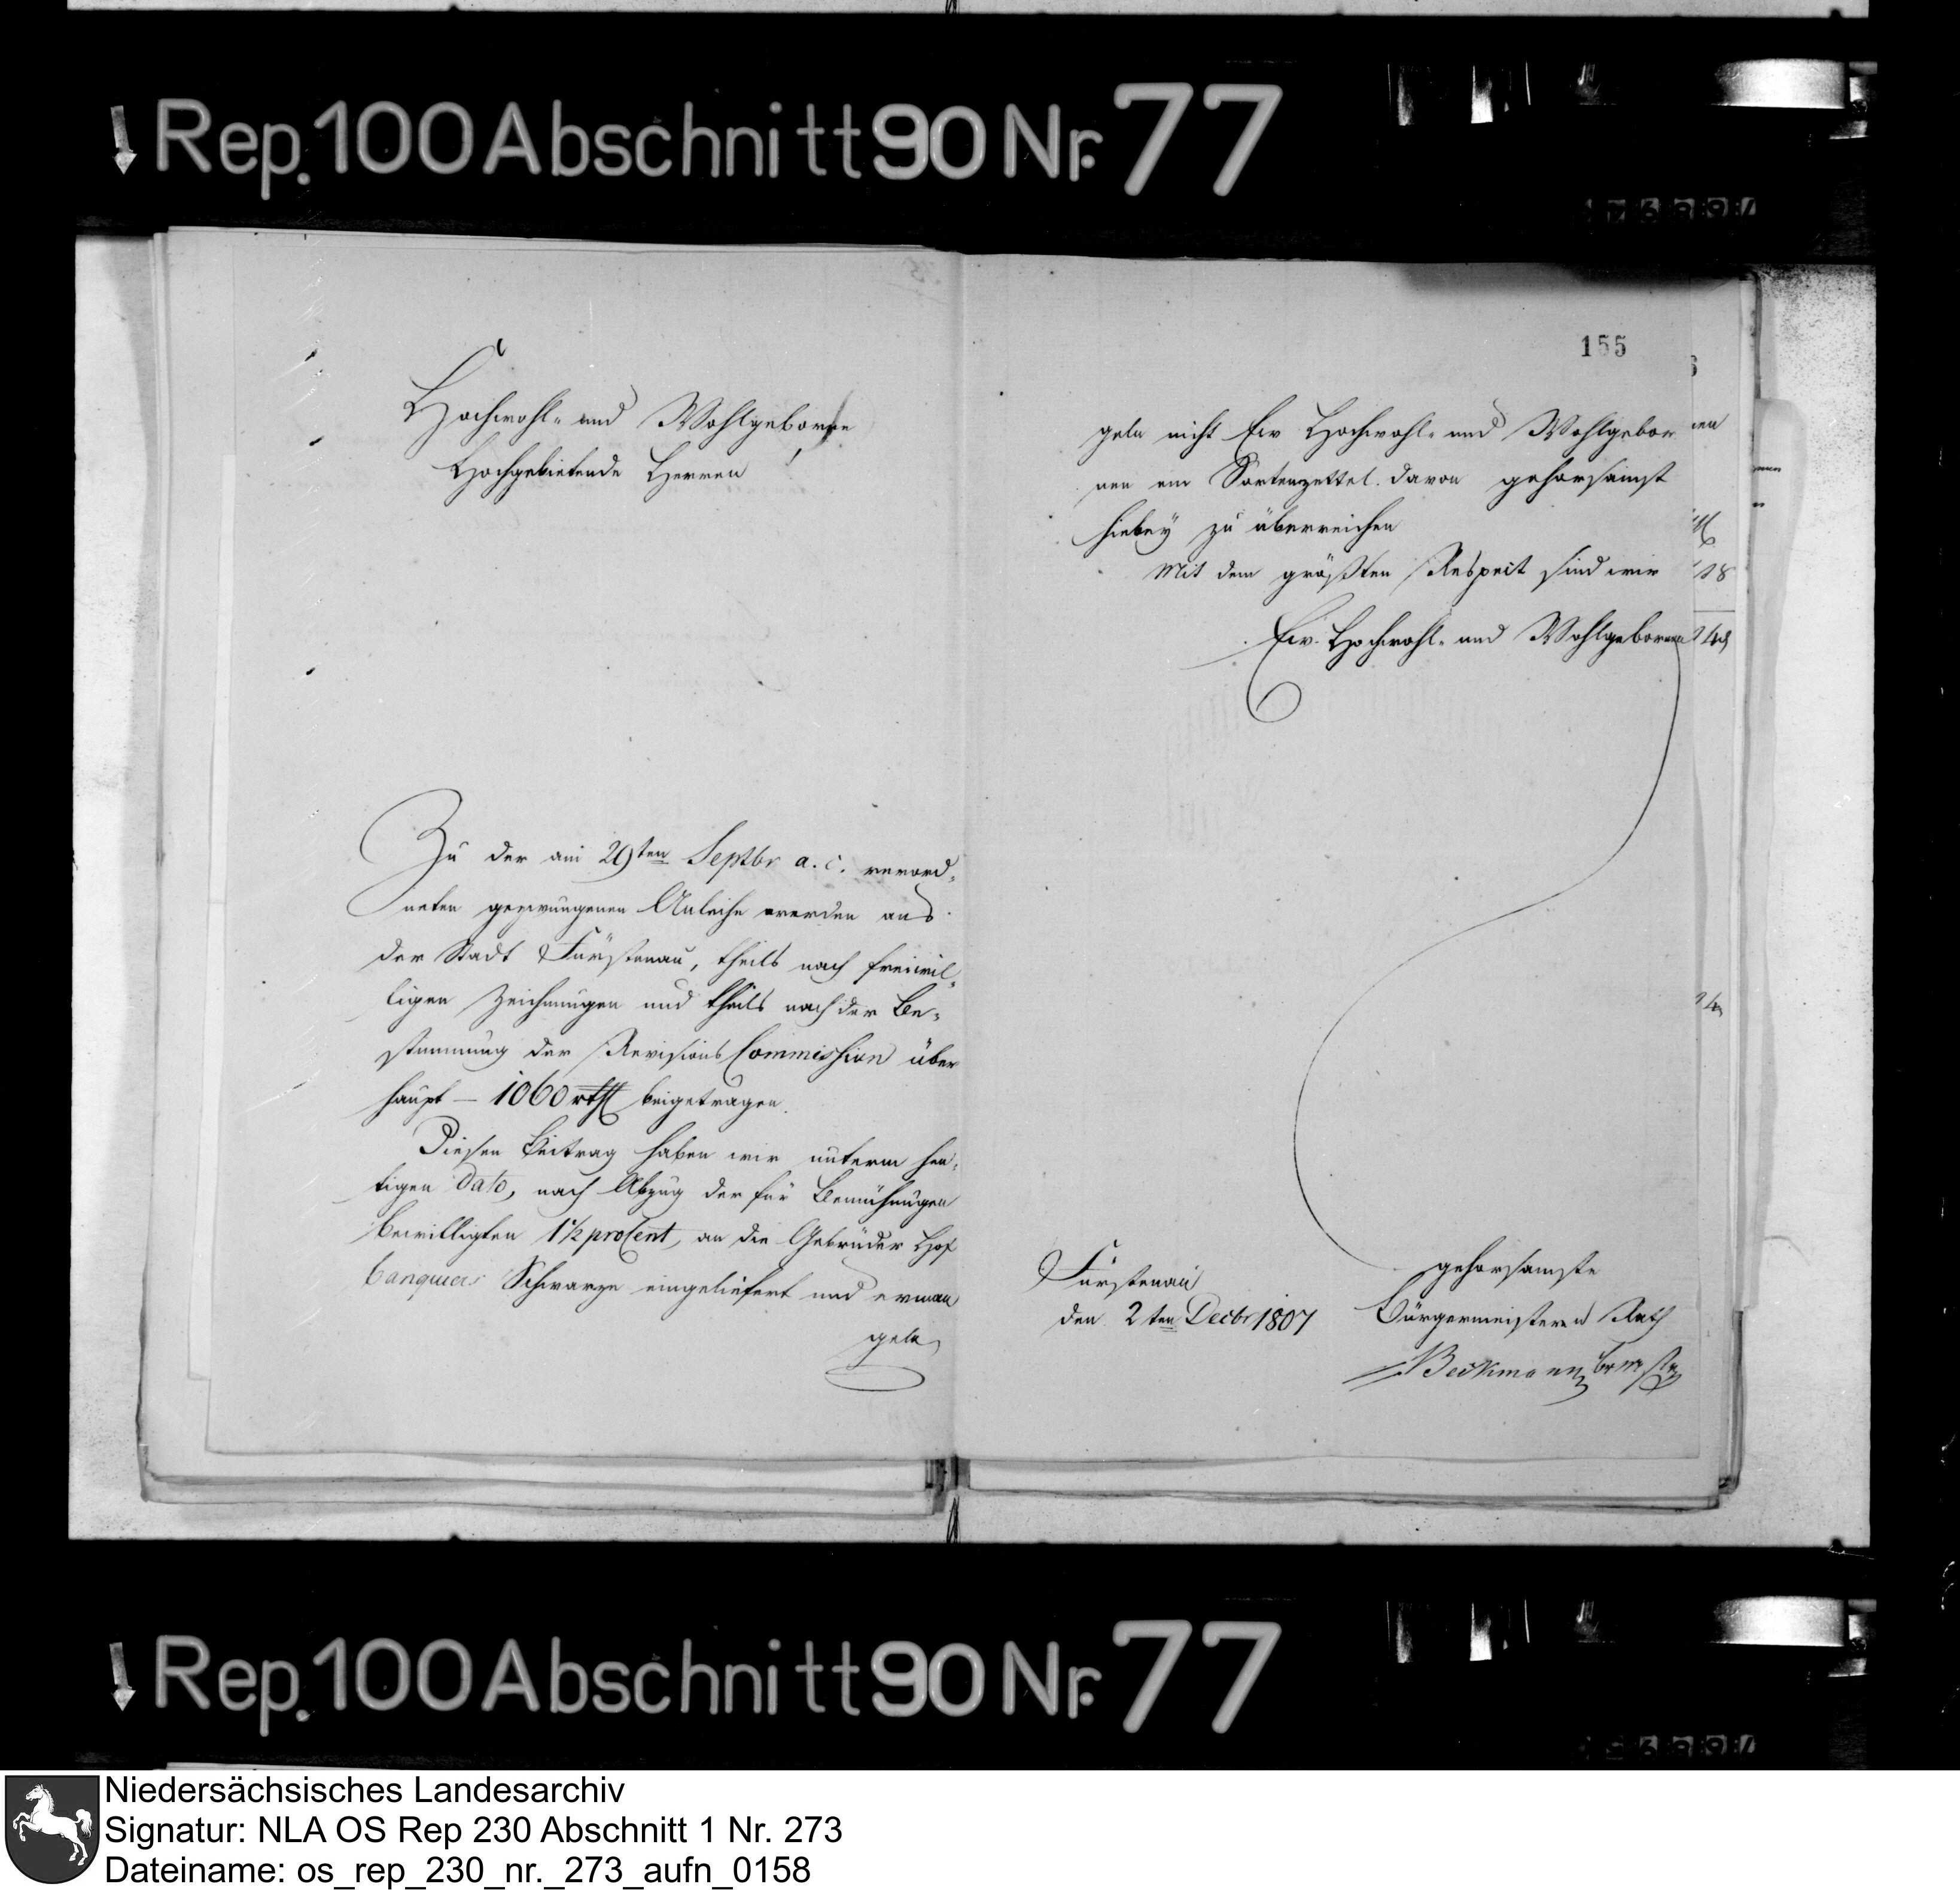 Rep. 100 Abschnitt 90 Nr. 77
Hochwohl- und Wohlgeborne
Hochgebietende Herren!
Zu der am 29ten Septbr a. c. verord-
neten gezwungenen Anleihe werden aus
der Stadt Fürstenau, theils nach freiwil-
ligen Zeichnungen und theils nach der Be-
stimmung der Revisions Commission über
haupt – 1060 rthl beigetragen.
Diesen Beitrag haben wir unterm heu-
tigen dato, nach Abzug der für Bemühungen
bewilligten 1½ proCent, an die Gebrüder Hof
banquiers Schwarze eingeliefert und erman
geln
155
geln nicht Ew Hochwohl- und Wohlgebor
nen ein Sortenzettel davon gehorsamst
hiebey zu überreichen
Mit dem größten Respect sind wir
Ew. Hochwohl- und Wohlgebornen
gehorsamste
Fürstenau
den 2ten Decbr 1807
Bürgermeister u Rath
Beckmann brmstr
Rep. 100 Abschnitt 90 Nr. 77
Niedersächsisches Landesarchiv
Signatur: NLA OS Rep 230 Abschnitt 1 Nr. 273
Dateiname: os_rep_230_nr._273_aufn_0158